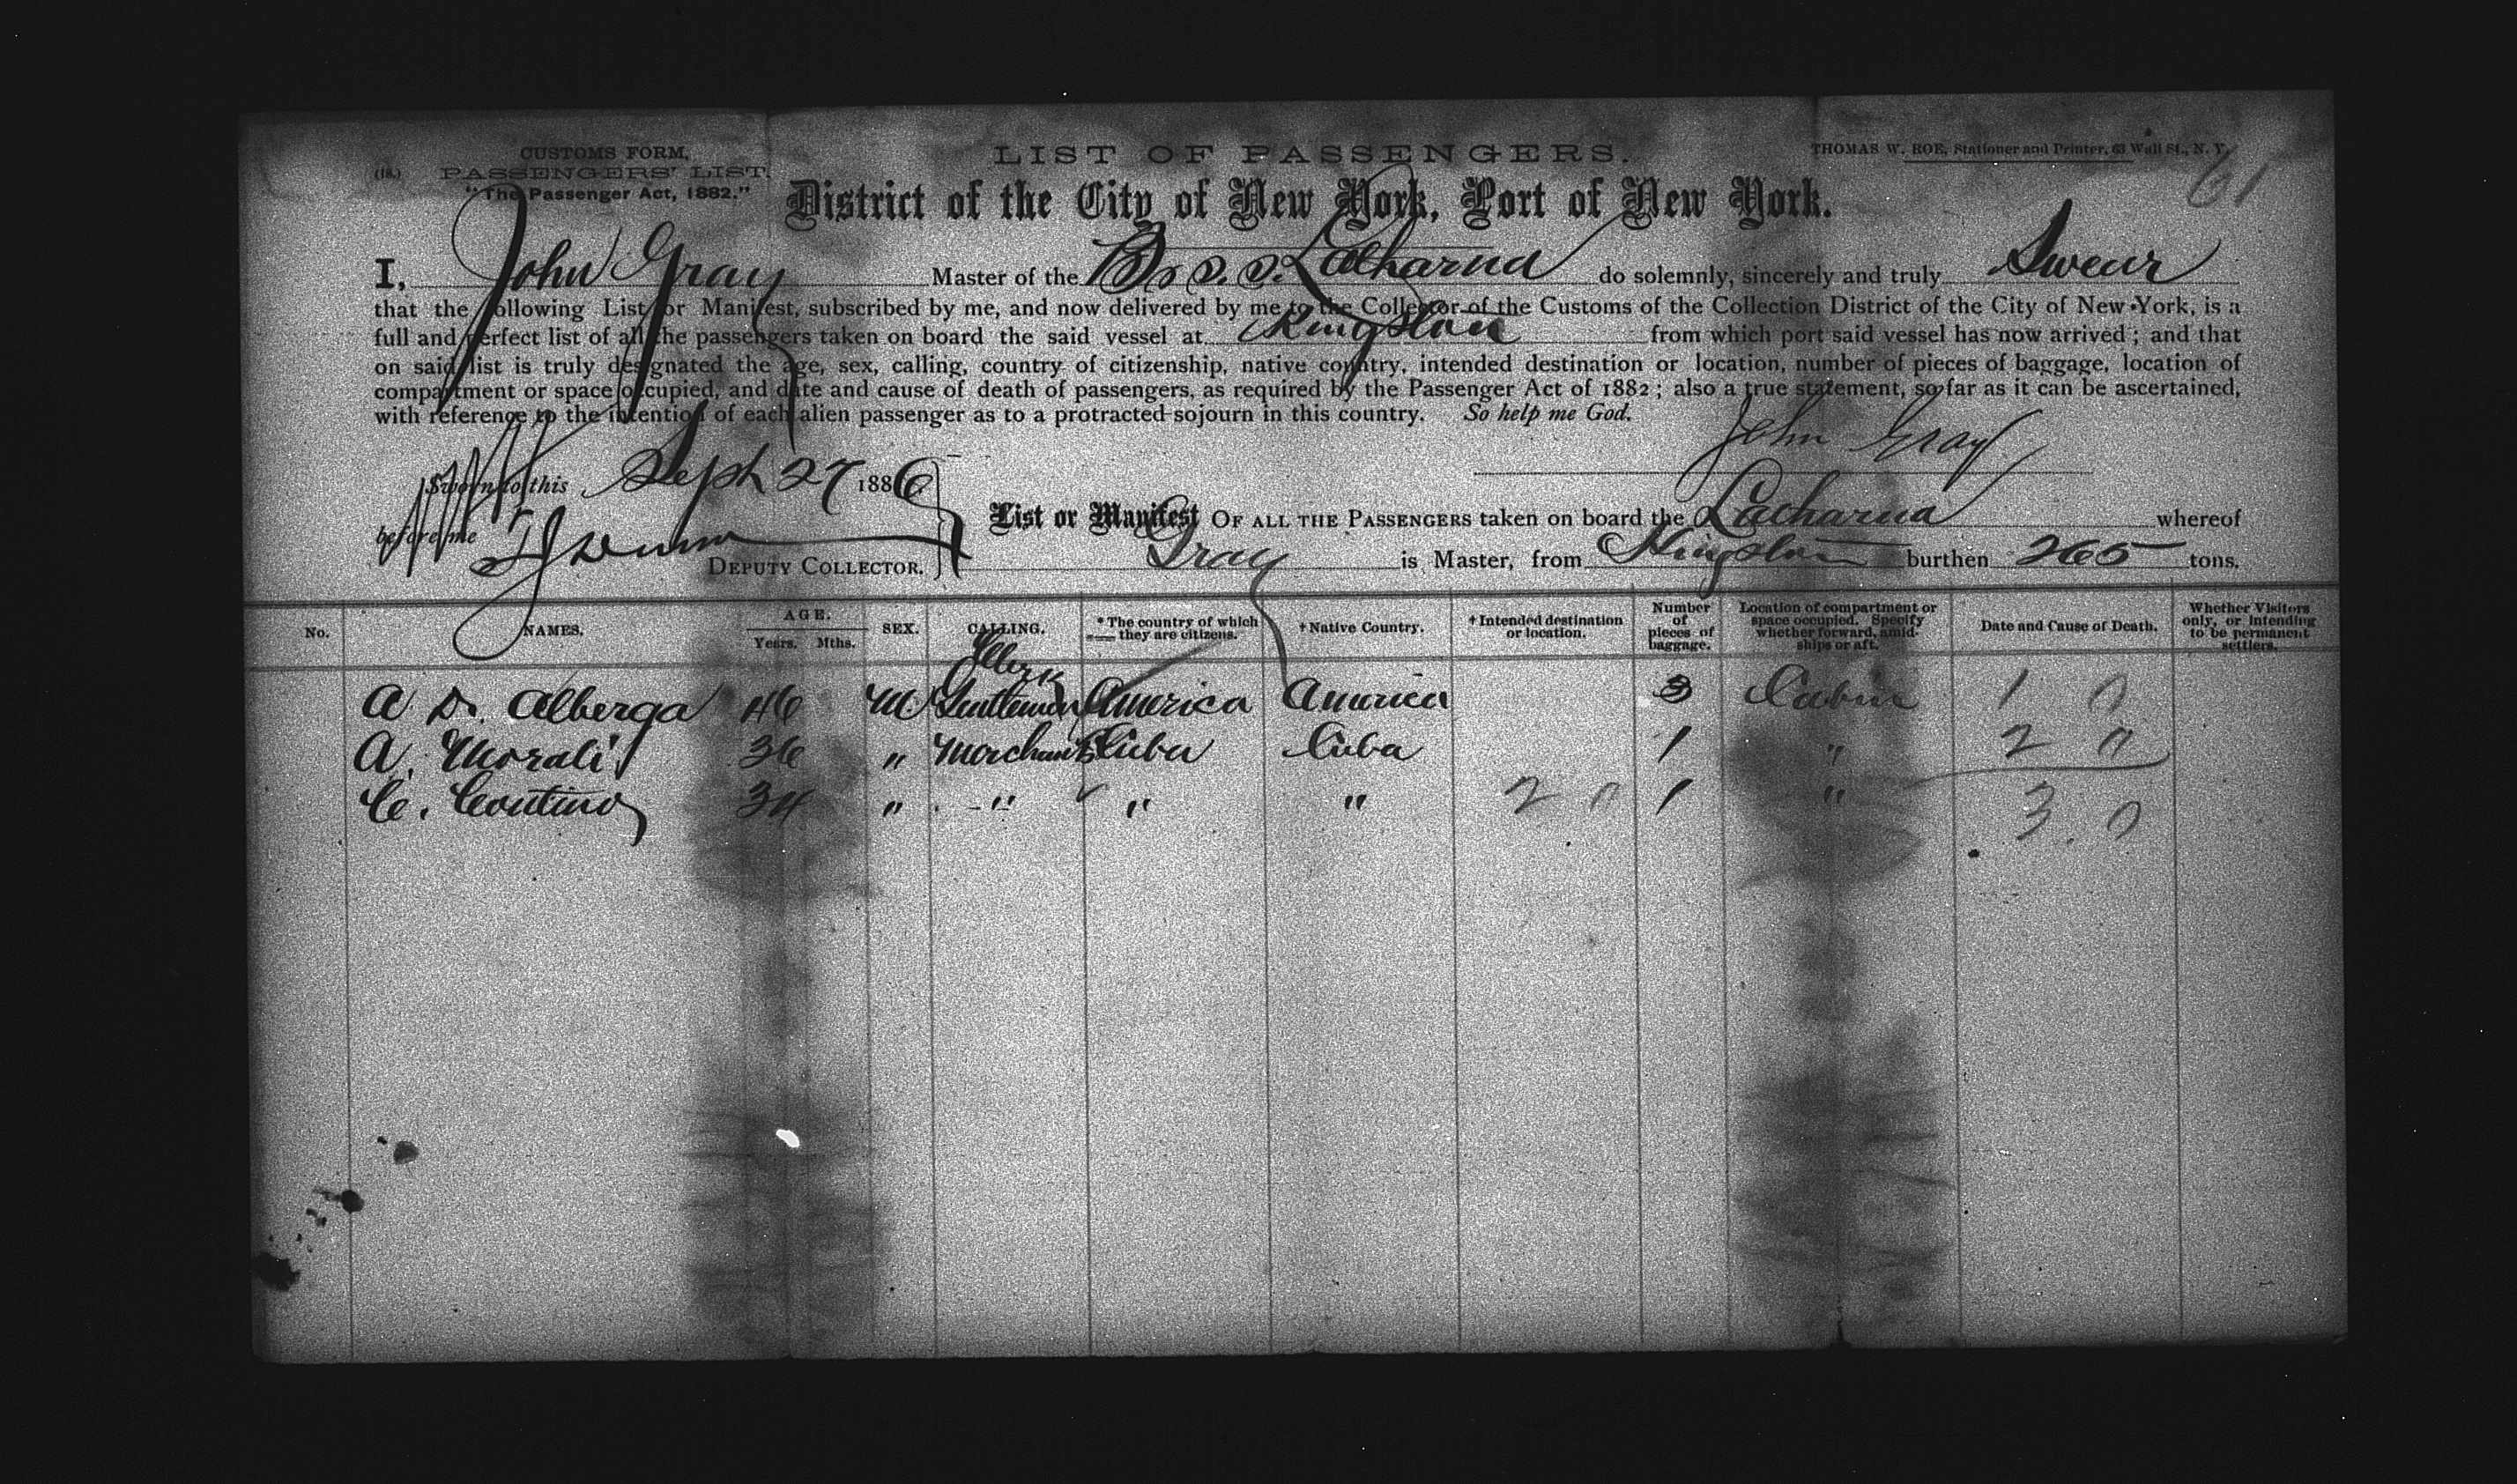 CUSTOMS FORM,
(18.) PASSENGERS' LIST.
"The Passenger Act, 1882."
LIST OF PASSENGERS.
THOMAS W. ROE, Stationer and Printer, 63 Wall St., N. Y.
61
District of the City of New York, Port of New York.
I, John Gray Master of the Br S. S. Lacharna do solemnly, sincerely and truly Swear
that the following List or Manifest, subscribed by me, and now delivered by me to the Collector of the Customs of the Collection District of the City of New York, is a
full and perfect list of all the passengers taken on board the said vessel at Kingston from which port said vessel has now arrived; and that
on said list is truly designated the age, sex, calling, country of citizenship, native country, intended destination or location, number of pieces of baggage, location of
compartment or space occupied, and date and cause of death of passengers, as required by the Passenger Act of 1882; also a true statement, so far as it can be ascertained,
with reference to the intention of each alien passenger as to a protracted sojourn in this country. So help me God.
John Gray
Sworn to this Sept 27 1886
before me
DEPUTY COLLECTOR.
List or Manifest OF ALL THE PASSENGERS taken on board the Lacharna whereof
Gray is Master, from Kingston burthen 265 tons.
No. NAMES. AGE. Years. Mths. SEX. CALLING. *The country of which they are citizens. †Native Country. †Intended destination or location. Number of pieces of baggage. Location of compartment or space occupied. Specify whether forward, amidships or aft. Date and Cause of Death. Whether Visitors only, or intending to be permanent settlers.
Clerk
A D. Alberga 46 M Gentleman America America 3 Cabin 1 0
A. Morali 36 " Merchant Cuba Cuba 1 " 2 0
C. Coutino 34 " " " " 2 0 1 " 3 0